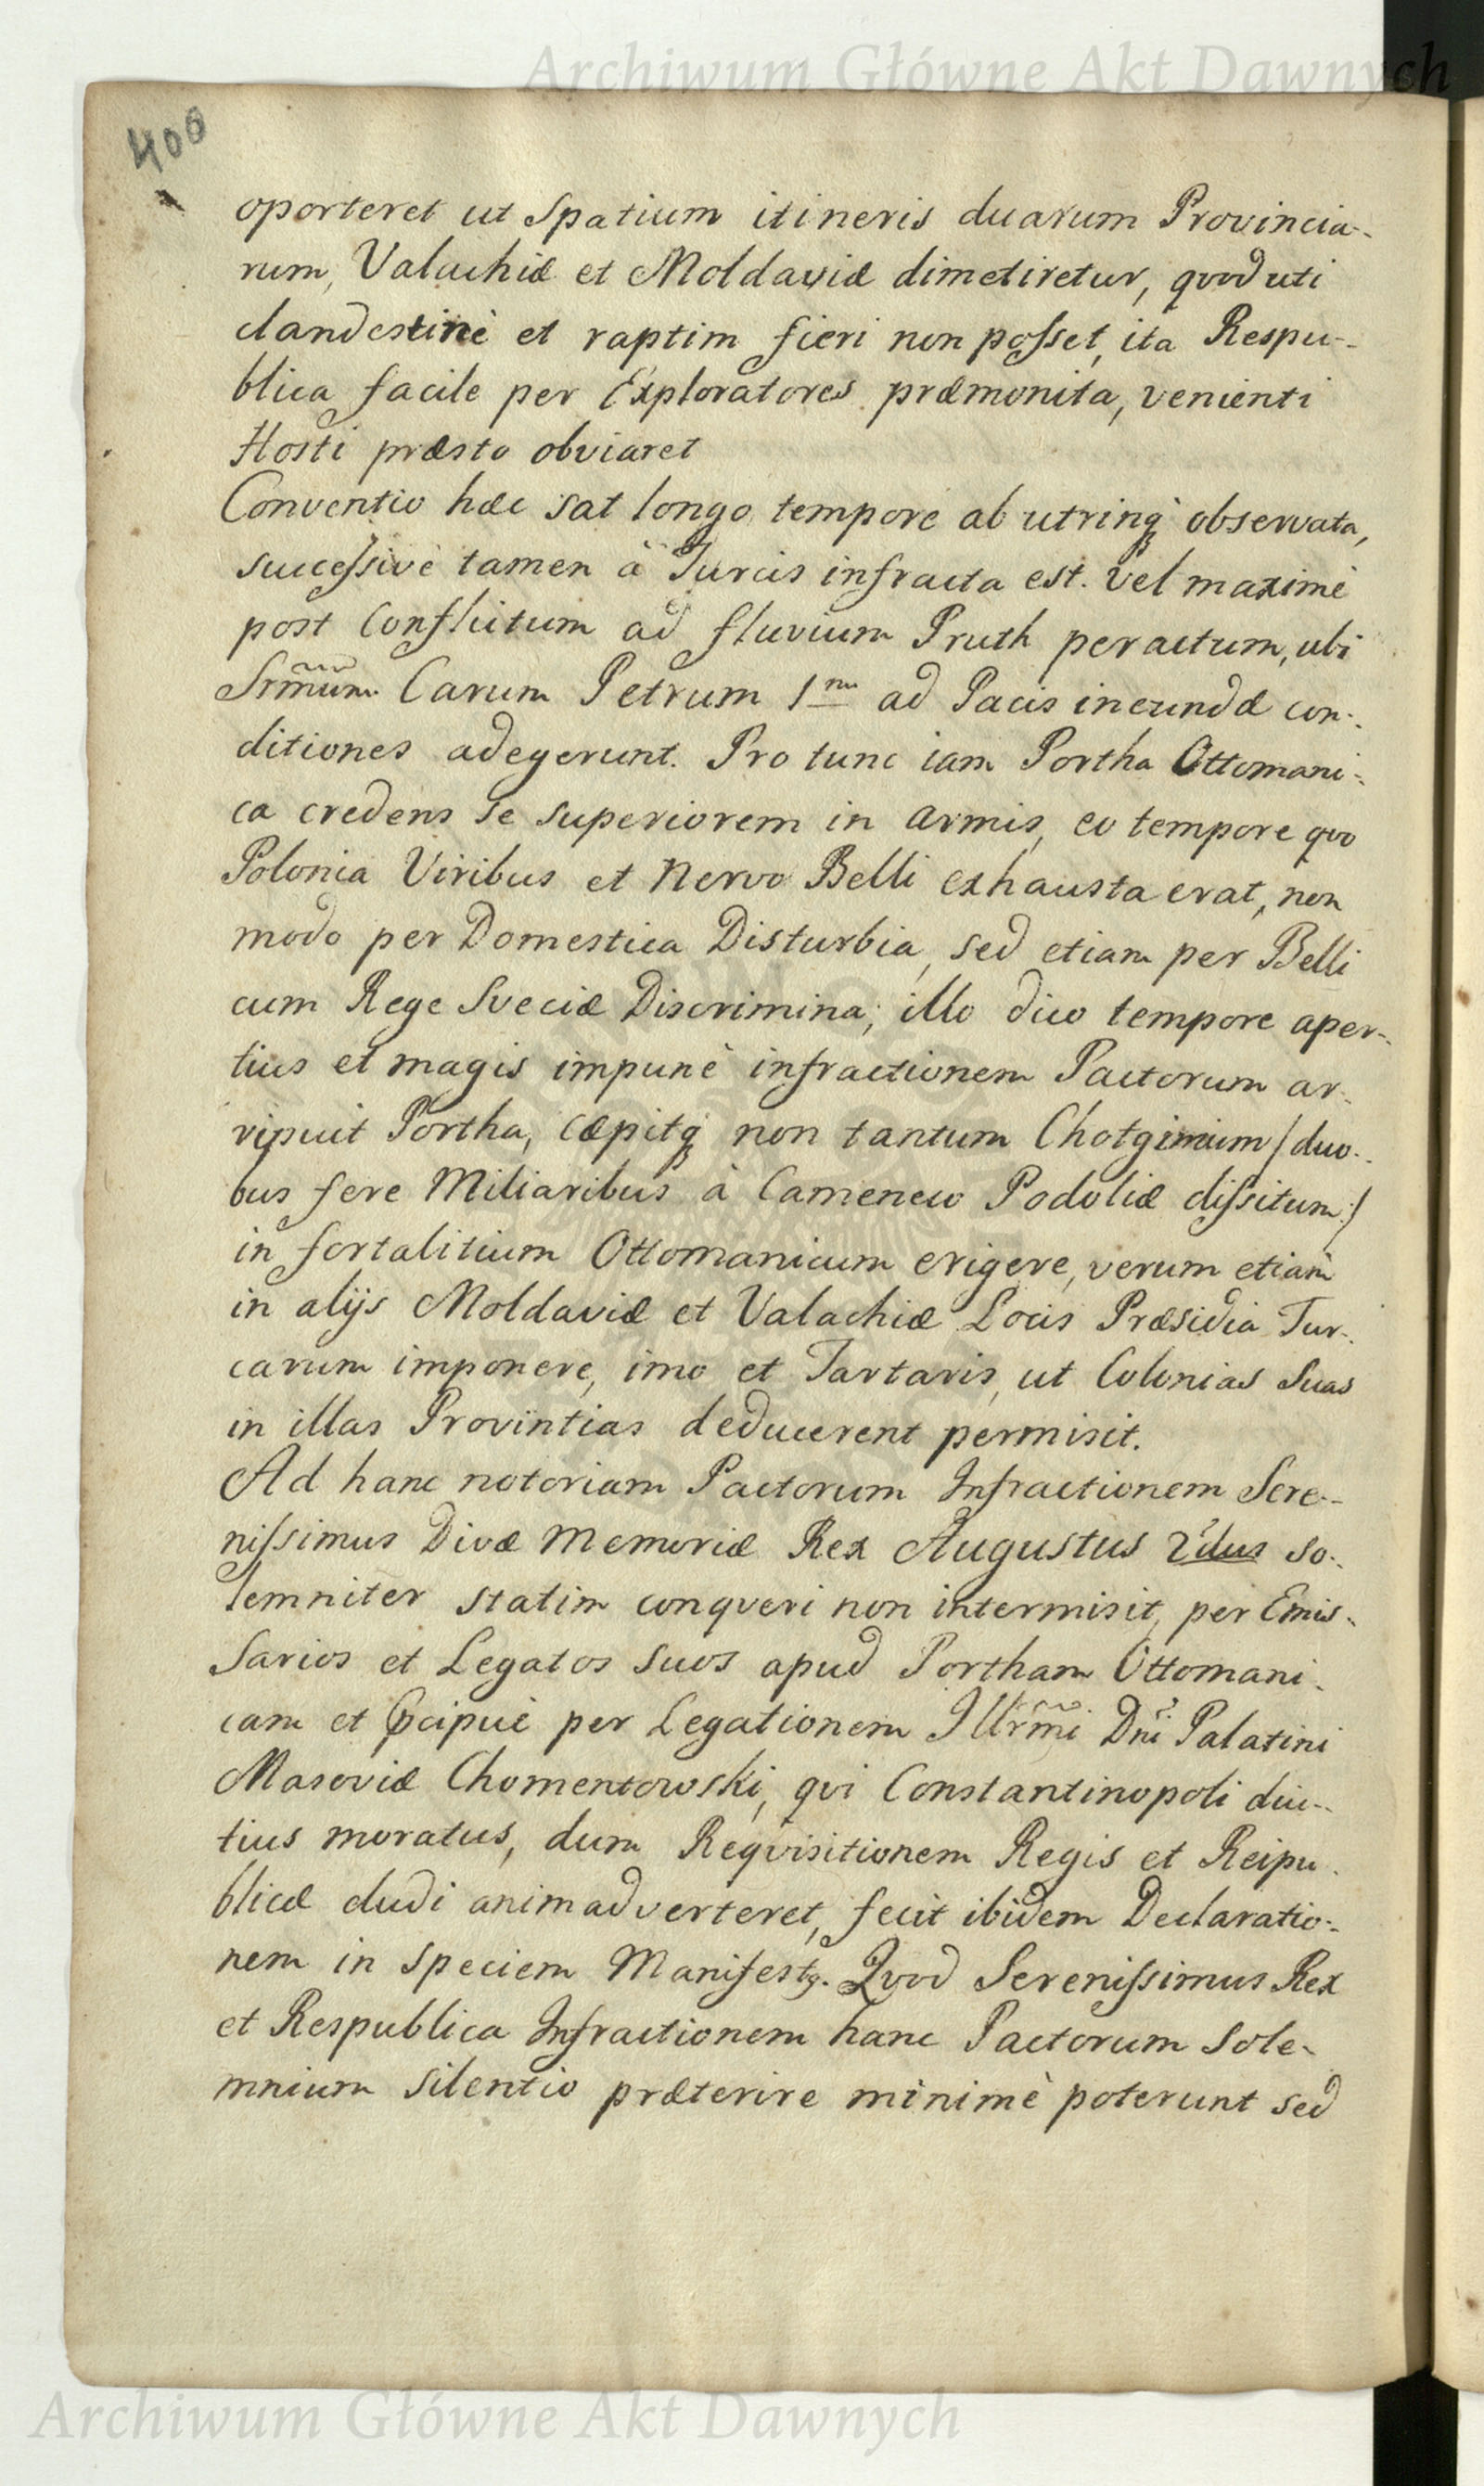 Archiwum Główne Akt Dawnych
400
oporteret ut Spatium itineris duarum Provincia-
rum, Valachiæ et Moldaviæ dimetiretur, quod uti
clandestinè et raptim fieri non posset, ita Respu-
blica facile per Exploratores præmonita, venienti
Hosti præsto obviaret
Conventio hæc sat longo tempore ab utrinq́ observata,
successivè tamen à Turcis infracta est. Vel maximè
post Conflictum ad fluvium Pruth peractum, ubi
Srm̃um Carum Petrum 1mu ad Pacis ineundæ con-
ditiones adegerunt. Pro tunc iam Portha Ottomani-
ca credens se superiorem in armis, eo tempore quo
Polonia Viribus et Nervo Belli exhausta erat, non
modo per Domestica Disturbia, sed etiam per Belli
cum Rege Sveciæ Discrimina; illo dico tempore aper-
tius et magis impunè infractionem Pactorum ar-
ripuit Portha, cæpitq́ non tantum Chotgimium /duo-
bus fere Miliaribus à Cameneco Podoliæ dissitum:/
in fortalitium Ottomanicum erigere, verum etiam
in alijs Moldaviæ et Valachiæ Locis Præsidia Tur-
carum imponere, imo et Tartaris, ut Colonias Suas
in illas Provintias deducerent permisit.
Ad hanc notoriam Pactorum Infractionem Sere-
nissimus Divæ Memoriæ Rex Augustus 2dus so-
lemniter statim conqveri non intermisit, per Emis-
sarios et Legatos suos apud Portham Ottomani-
cam et Pcipuè per Legationem Illrm̃i Dni Palatini
Masoviæ Chomentowski, qvi Constantinopoli diu-
tius moratus, dum Reqvisitionem Regis et Reipu-
blicæ eludi animadverteret, fecit ibidem Declaratio-
nem in speciem Manifestꝫ. Qvod Serenissimus Rex
et Respublica Infractionem hanc Pactorum Sole-
mnium silentio præterire minimè poterunt sed
Archiwum Główne Akt Dawnych